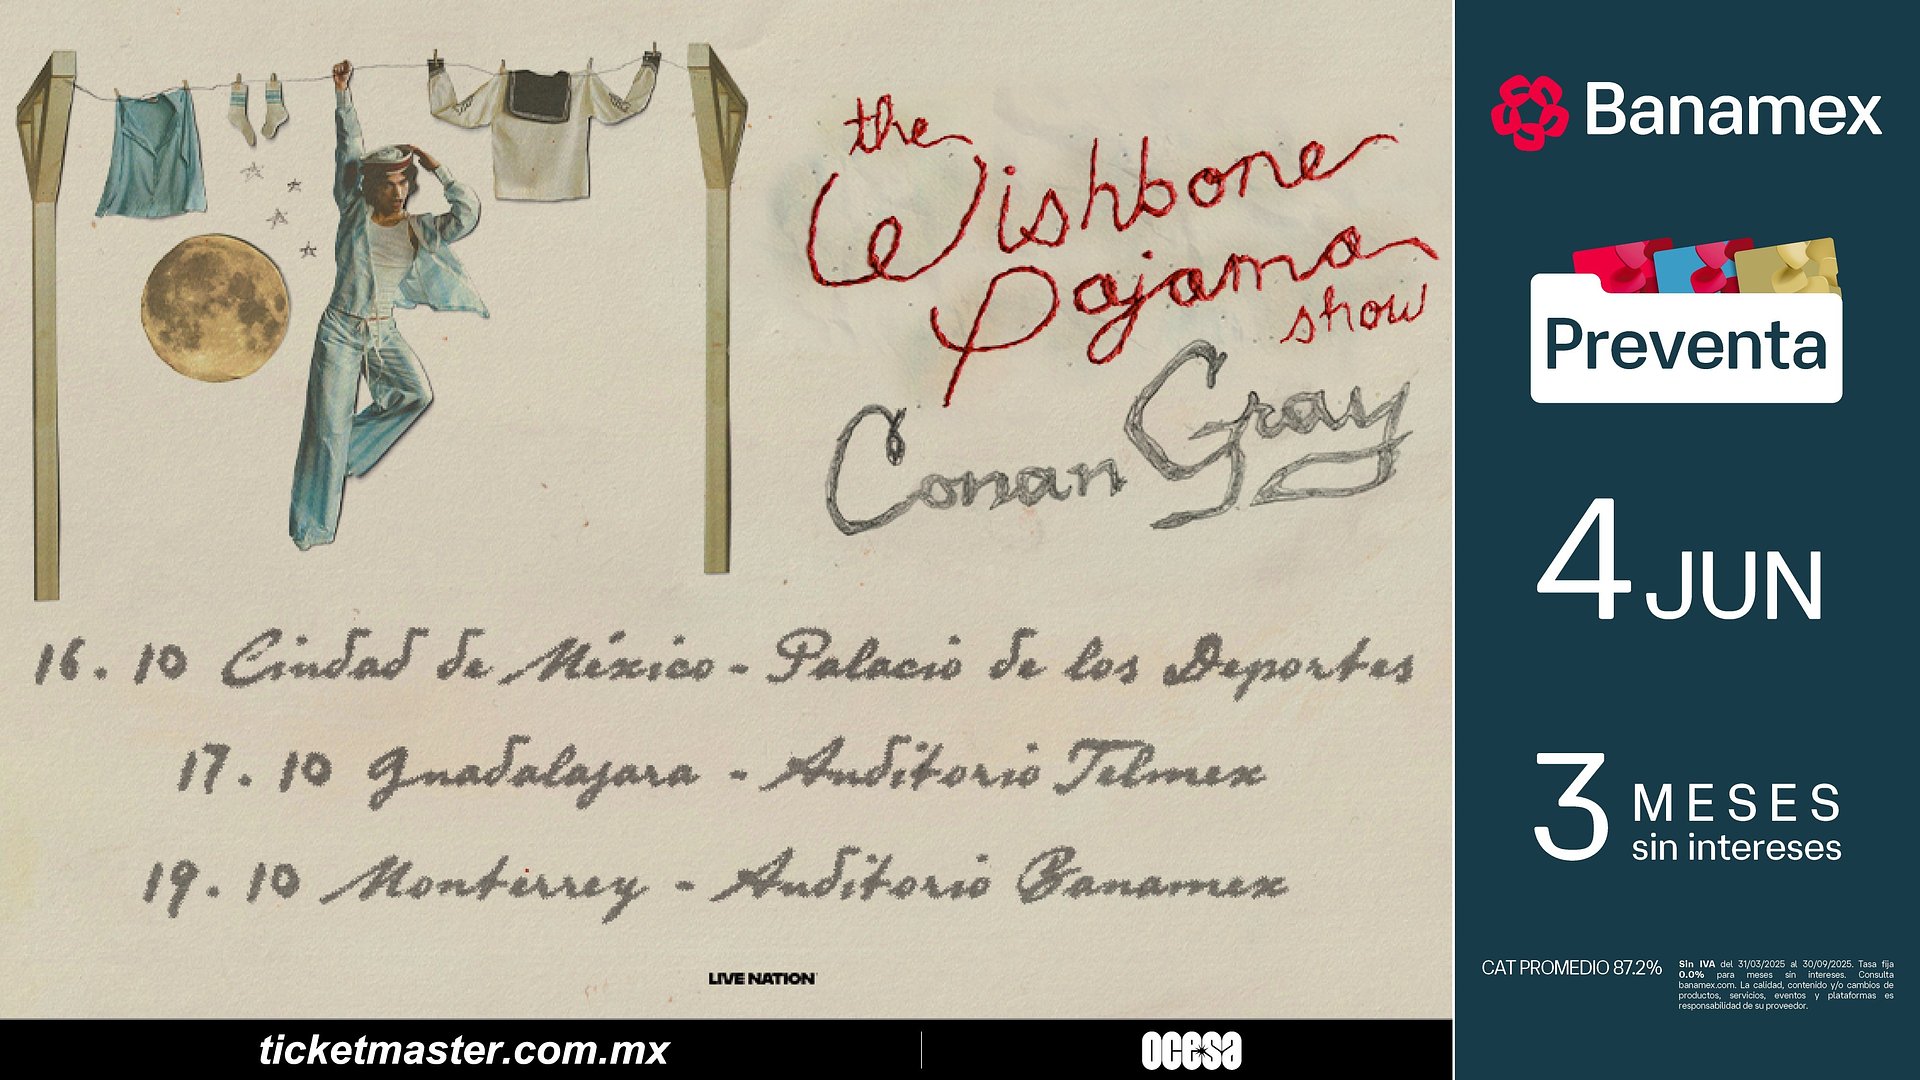 the
Wishbone
Pajama
show
Conan Gray
16.10 Ciudad de México - Palacio de los Deportes
17.10 Guadalajara - Auditorio Telmex
19.10 Monterrey - Auditorio Banamex
LIVE NATION
ticketmaster.com.mx
ocesa
Banamex
Preventa
4 JUN
3 MESES
sin intereses
CAT PROMEDIO 87.2%
Sin IVA del 31/03/2025 al 30/09/2025. Tasa fija
0.0% para meses sin intereses. Consulta
banamex.com. La calidad, contenido y/o cambios de
productos, servicios, eventos y plataformas es
responsabilidad de su proveedor.